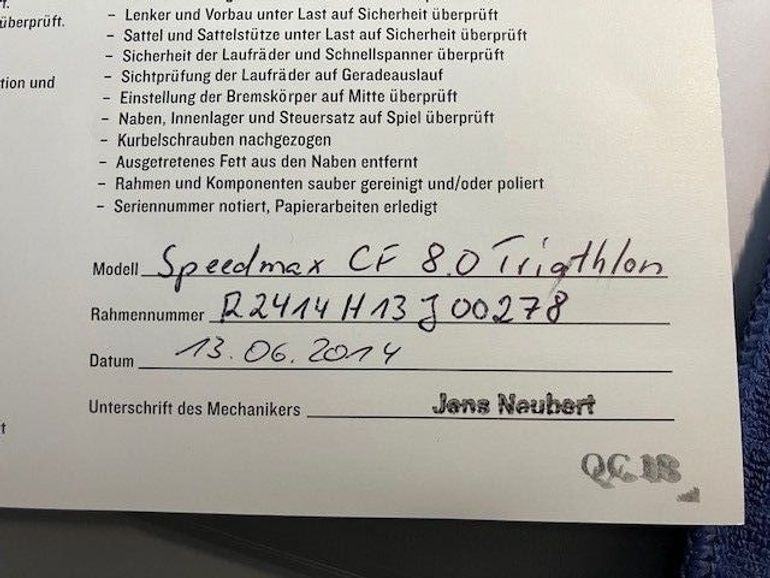 überprüft.
tion und
– Lenker und Vorbau unter Last auf Sicherheit überprüft
– Sattel und Sattelstütze unter Last auf Sicherheit überprüft
– Sicherheit der Laufräder und Schnellspanner überprüft
– Sichtprüfung der Laufräder auf Geradeauslauf
– Einstellung der Bremskörper auf Mitte überprüft
– Naben, Innenlager und Steuersatz auf Spiel überprüft
– Kurbelschrauben nachgezogen
– Ausgetretenes Fett aus den Naben entfernt
– Rahmen und Komponenten sauber gereinigt und/oder poliert
– Seriennummer notiert, Papierarbeiten erledigt
Modell Speedmax CF 8.0 Triathlon
Rahmennummer R2414H13J00278
Datum 13.06.2014
Unterschrift des Mechanikers Jens Neubert
QC 18